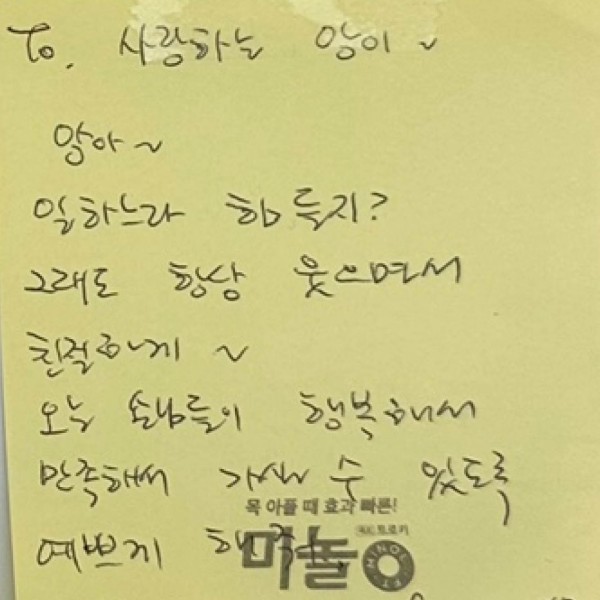 To. 사랑하는 앙이~
앙아~
일하느라 힘들지?
그래도 항상 웃으면서
친절하게~
오는 손님들이 행복해서
만족해서 가실 수 있도록
목 아플 때 효과 빠른!
예쁘게 해
미놀
트로키
MINOL